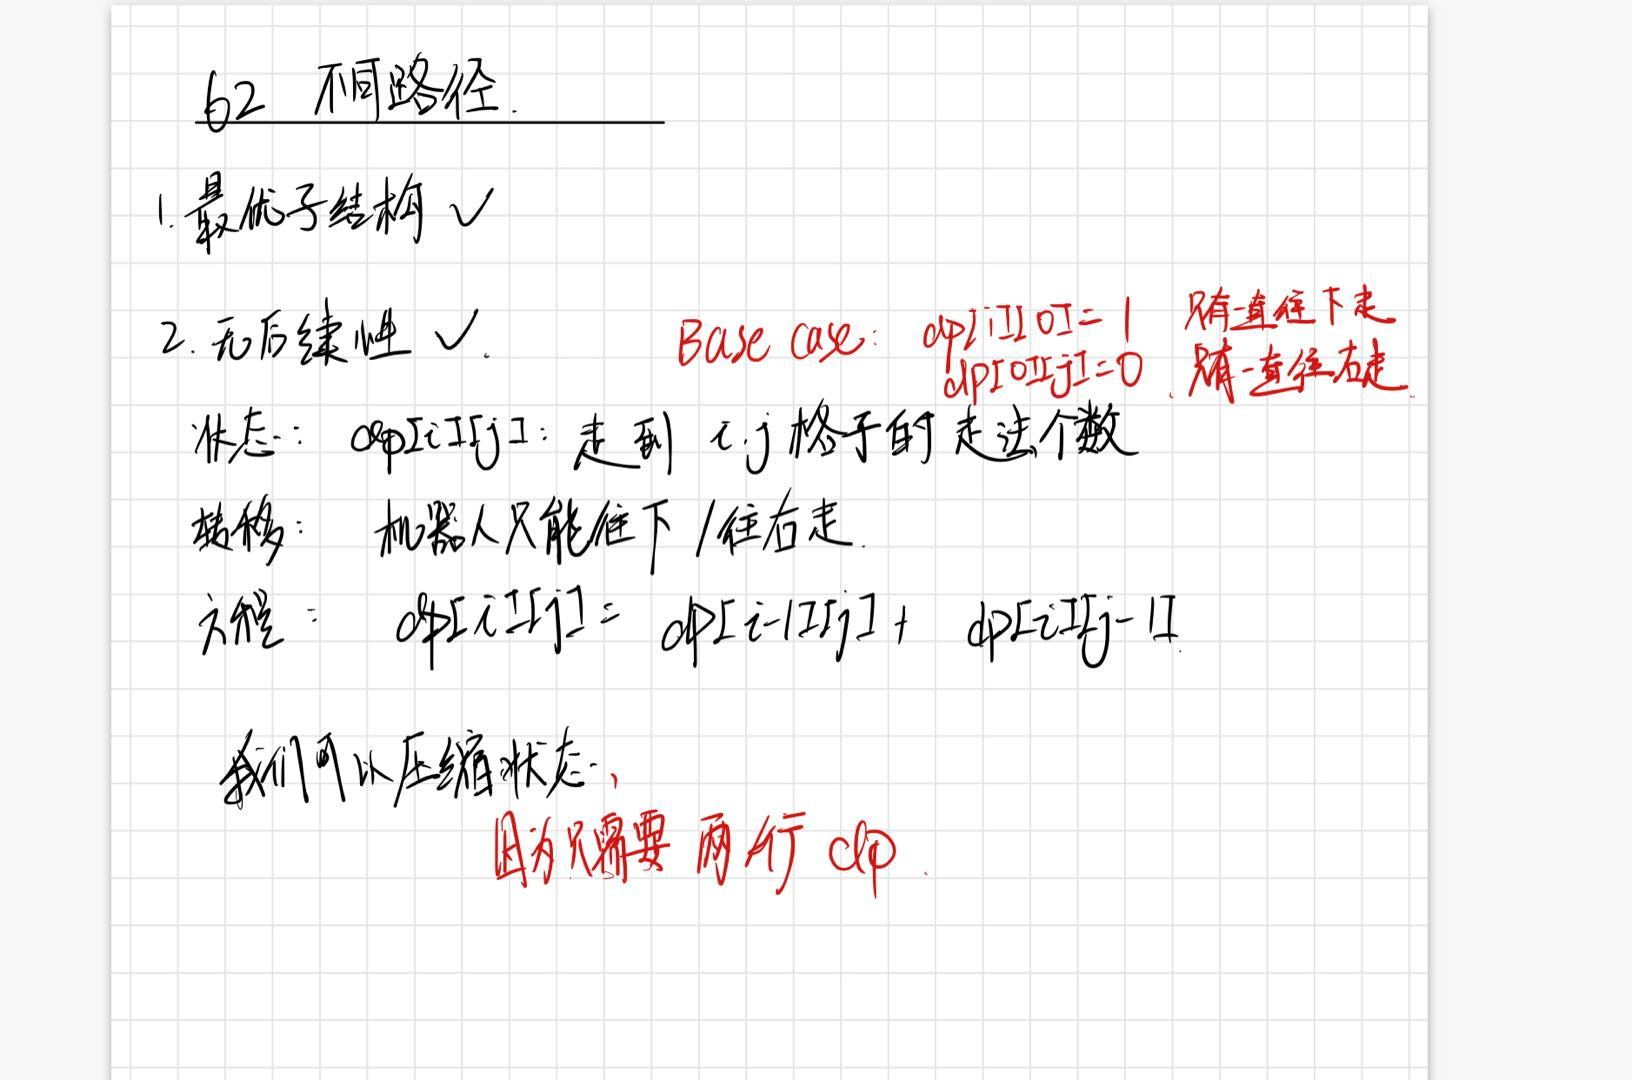 62 不同路径.
1. 最优子结构 ✓
2. 无后续性 ✓.
Base case: dp[i][0]=1 只有一直往下走
dp[0][j]=0. 只有一直往右走.
状态: dp[i][j]: 走到 i.j 格子的走法个数
转移: 机器人只能往下/往右走.
方程: dp[i][j]= dp[i-1][j]+ dp[i][j-1].
我们可以压缩状态.,
因为只需要两行 dp.